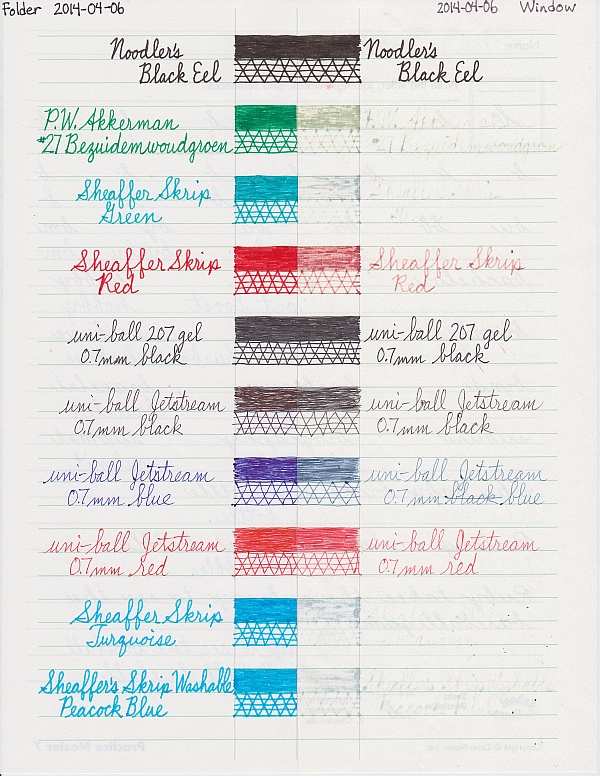 Folder 2014-04-06
2014-04-06 Window
Noodler's
Black Eel
Noodler's
Black Eel
P.W. Akkerman
#21 Bezuidemwoudgroen
P.W. Akkerman
#21 Bezuidemwoudgroen
Sheaffer Skrip
Green
Sheaffer Skrip
Green
Sheaffer Skrip
Red
Sheaffer Skrip
Red
uni-ball 207 gel
0.7mm black
uni-ball 207 gel
0.7mm black
uni-ball Jetstream
0.7mm black
uni-ball Jetstream
0.7mm black
uni-ball Jetstream
0.7mm blue
uni-ball Jetstream
0.7mm black blue
uni-ball Jetstream
0.7mm red
uni-ball Jetstream
0.7mm red
Sheaffer Skrip
Turquoise
Sheaffer's Skrip Washable
Peacock Blue
Peacock